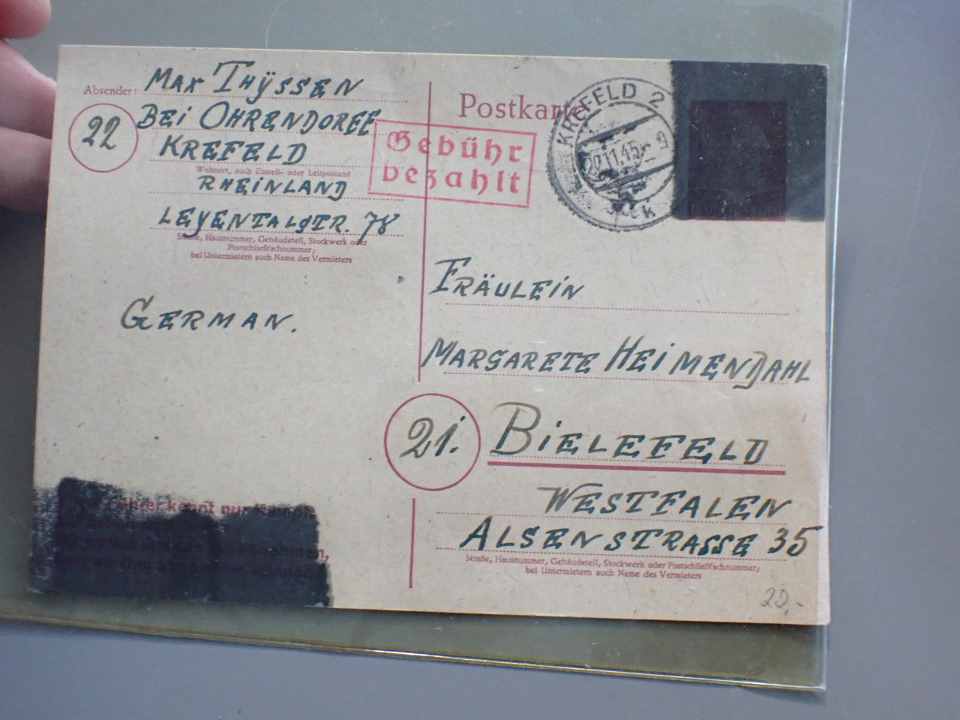 Absender: MAX THYSSEN
BEI OHRENDORFF
22
KREFELD
Wohnort, auch Zustell- oder Leitpostamt
RHEINLAND
LEYENTALSTR. 78
Straße, Hausnummer, Gebäudeteil, Stockwerk oder
Postschließfachnummer;
bei Untermietern auch Name des Vermieters
GERMAN.
Postkarte
Gebühr
bezahlt
KREFELD 2
FRÄULEIN
MARGARETE HEIMENDAHL
21. BIELEFELD
WESTFALEN
ALSENSTRASSE 35
Straße, Hausnummer, Gebäudeteil, Stockwerk oder Postschließfachnummer;
bei Untermietern auch Name des Vermieters
20,-
Führer kennt nur